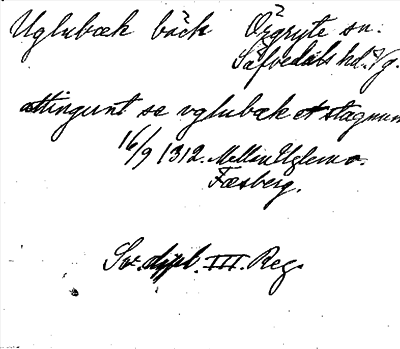 Uglubæk bäck Örgryte sn.
Säfvedals hd. Vg.
attingunt se vglubæk et stagnum
16/9 1312. Mellin Uglum o.
Fæsberg.
Sv. dipl. III. Reg.